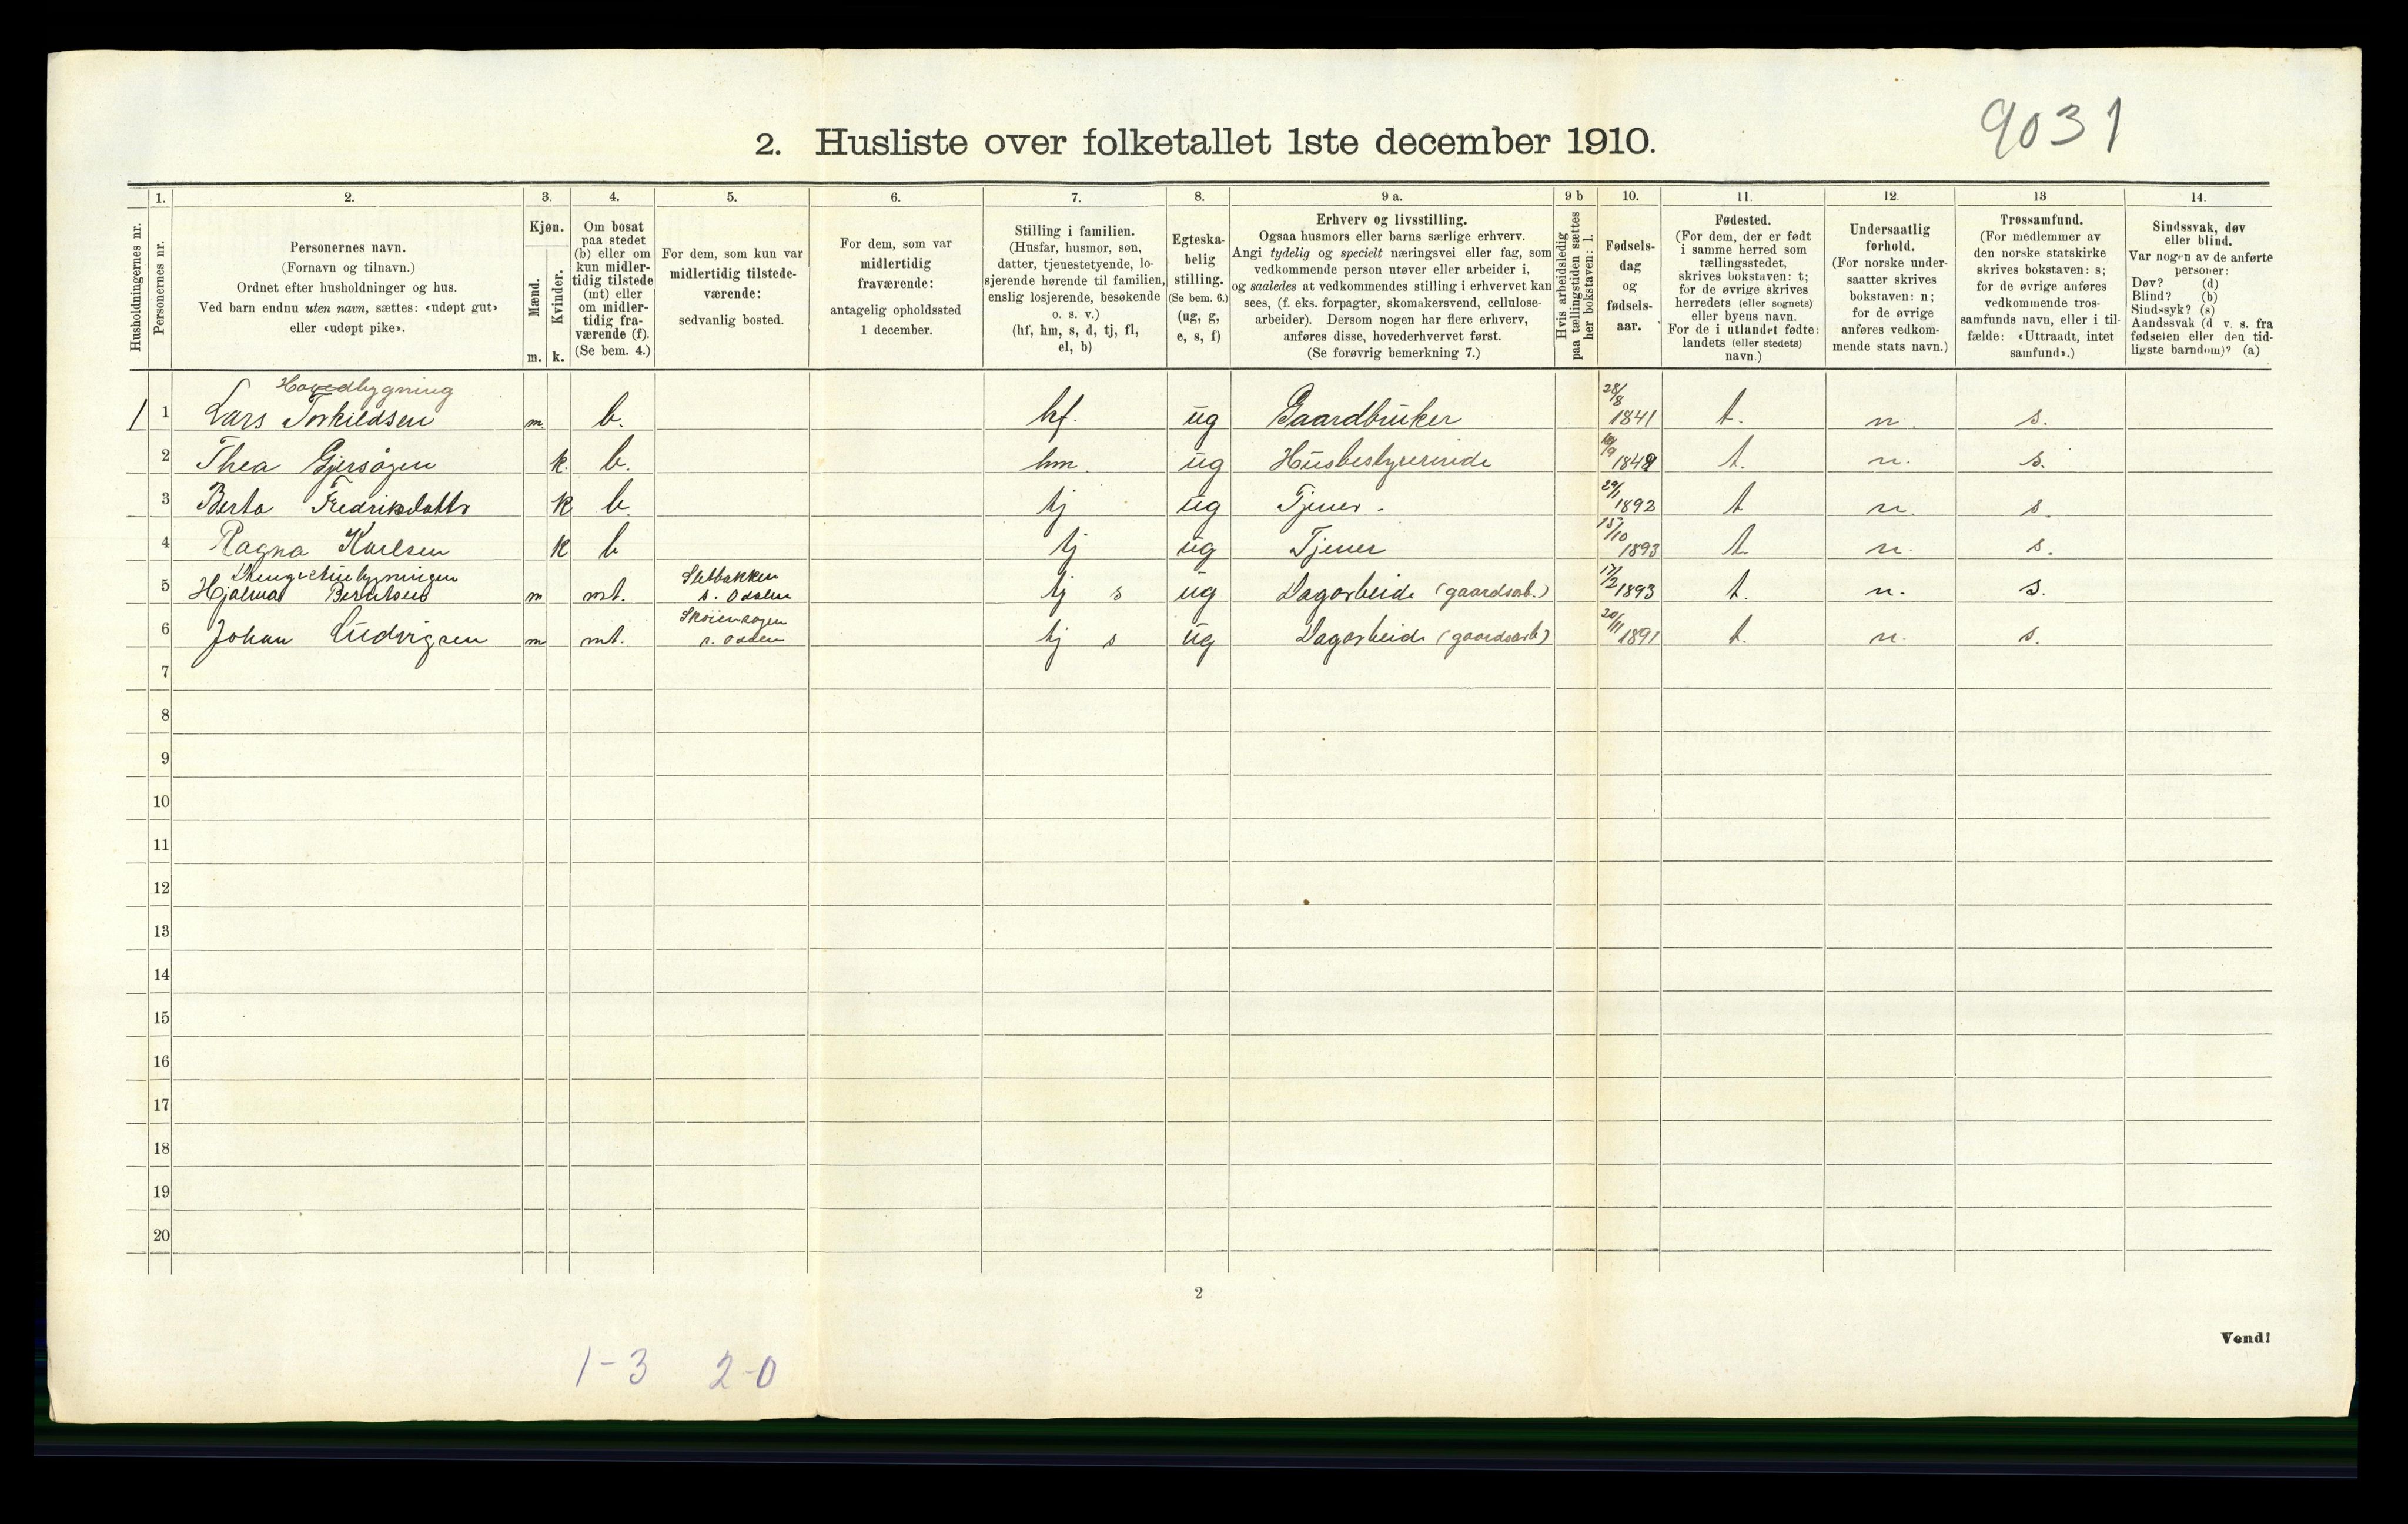 9031
2. Husliste over folketallet 1ste december 1910.
Husholdningernes nr.
1.
Personernes nr.
2.
Personernes navn.
(Fornavn og tilnavn.)
Ordnet efter husholdninger og hus.
Ved barn endnu uten navn, sættes: «udøpt gut»
eller «udøpt pike».
3.
Kjøn.
Mænd.
m.
Kvinder.
k.
4.
Om bosat
paa stedet
(b) eller om
kun midler-
tidig tilstede
(mt) eller
om midler-
tidig fra-
værende (f).
(Se bem. 4.)
5.
For dem, som kun var
midlertidig tilstede-
værende:
sedvanlig bosted.
6.
For dem, som var
midlertidig
fraværende:
antagelig opholdssted
1 december.
7.
Stilling i familien.
(Husfar, husmor, søn,
datter, tjenestetyende, lo-
sjerende hørende til familien,
enslig losjerende, besøkende
o. s. v.)
(hf, hm, s, d, tj, fl,
el, b)
8.
Egteska-
belig
stilling.
(Se bem. 6.)
(ug, g,
e, s, f)
9 a.
Erhverv og livsstilling.
Ogsaa husmors eller barns særlige erhverv.
Angi tydelig og specielt næringsvei eller fag, som
vedkommende person utøver eller arbeider i,
og saaledes at vedkommendes stilling i erhvervet kan
sees, (f. eks. forpagter, skomakersvend, cellulose-
arbeider). Dersom nogen har flere erhverv,
anføres disse, hovederhvervet først.
(Se forøvrig bemerkning 7.)
9 b
Hvis arbeidsledig
paa tællingstiden sættes
her bokstaven: l.
10.
Fødsels-
dag
og
fødsels-
aar.
11.
Fødested.
(For dem, der er født
i samme herred som
tællingsstedet,
skrives bokstaven: t;
for de øvrige skrives
herredets (eller sognets)
eller byens navn.
For de i utlandet fødte:
landets (eller stedets)
navn.)
12.
Undersaatlig
forhold.
(For norske under-
saatter skrives
bokstaven: n;
for de øvrige
anføres vedkom-
mende stats navn.)
13
Trossamfund.
(For medlemmer av
den norske statskirke
skrives bokstaven: s;
for de øvrige anføres
vedkommende tros-
samfunds navn, eller i til-
fælde: «Uttraadt, intet
samfund».)
14.
Sindssvak, døv
eller blind.
Var nogen av de anførte
personer:
Døv? (d)
Blind? (b)
Sindssyk? (s)
Aandssvak (d. v. s. fra
fødselen eller den tid-
ligste barndom)? (a)
Hovedbygning
1 1 Lars Torkildsen m. b. hf. ug Gaardbruker 28/8 1841 t. n. s.
2 Thea Gjersøyen k. b. hm. ug Husbestyrerinde /9 1849 t. n. s.
3 Berta Fredriksdattr k b. tj ug Tjener. 29/1 1892 t n. s.
4 Ragna Karlsen k b tj ug Tjener 15/10 1893 t. n. s.
Drengestuebygningen
5 Hjalmar Berntsen m mt. Sletbakken s. Odalen tj s ug Dagarbeide (gaardsarb.) 17/2 1893 t. n. s.
6 Johan Ludvigsen m mt. s. Odalen tj s ug Dagarbeide (gaardsarb) 20/11 1891 t. n. s.
7
8
9
10
11
12
13
14
15
16
17
18
19
20
2
Vend!
1-3 2-0